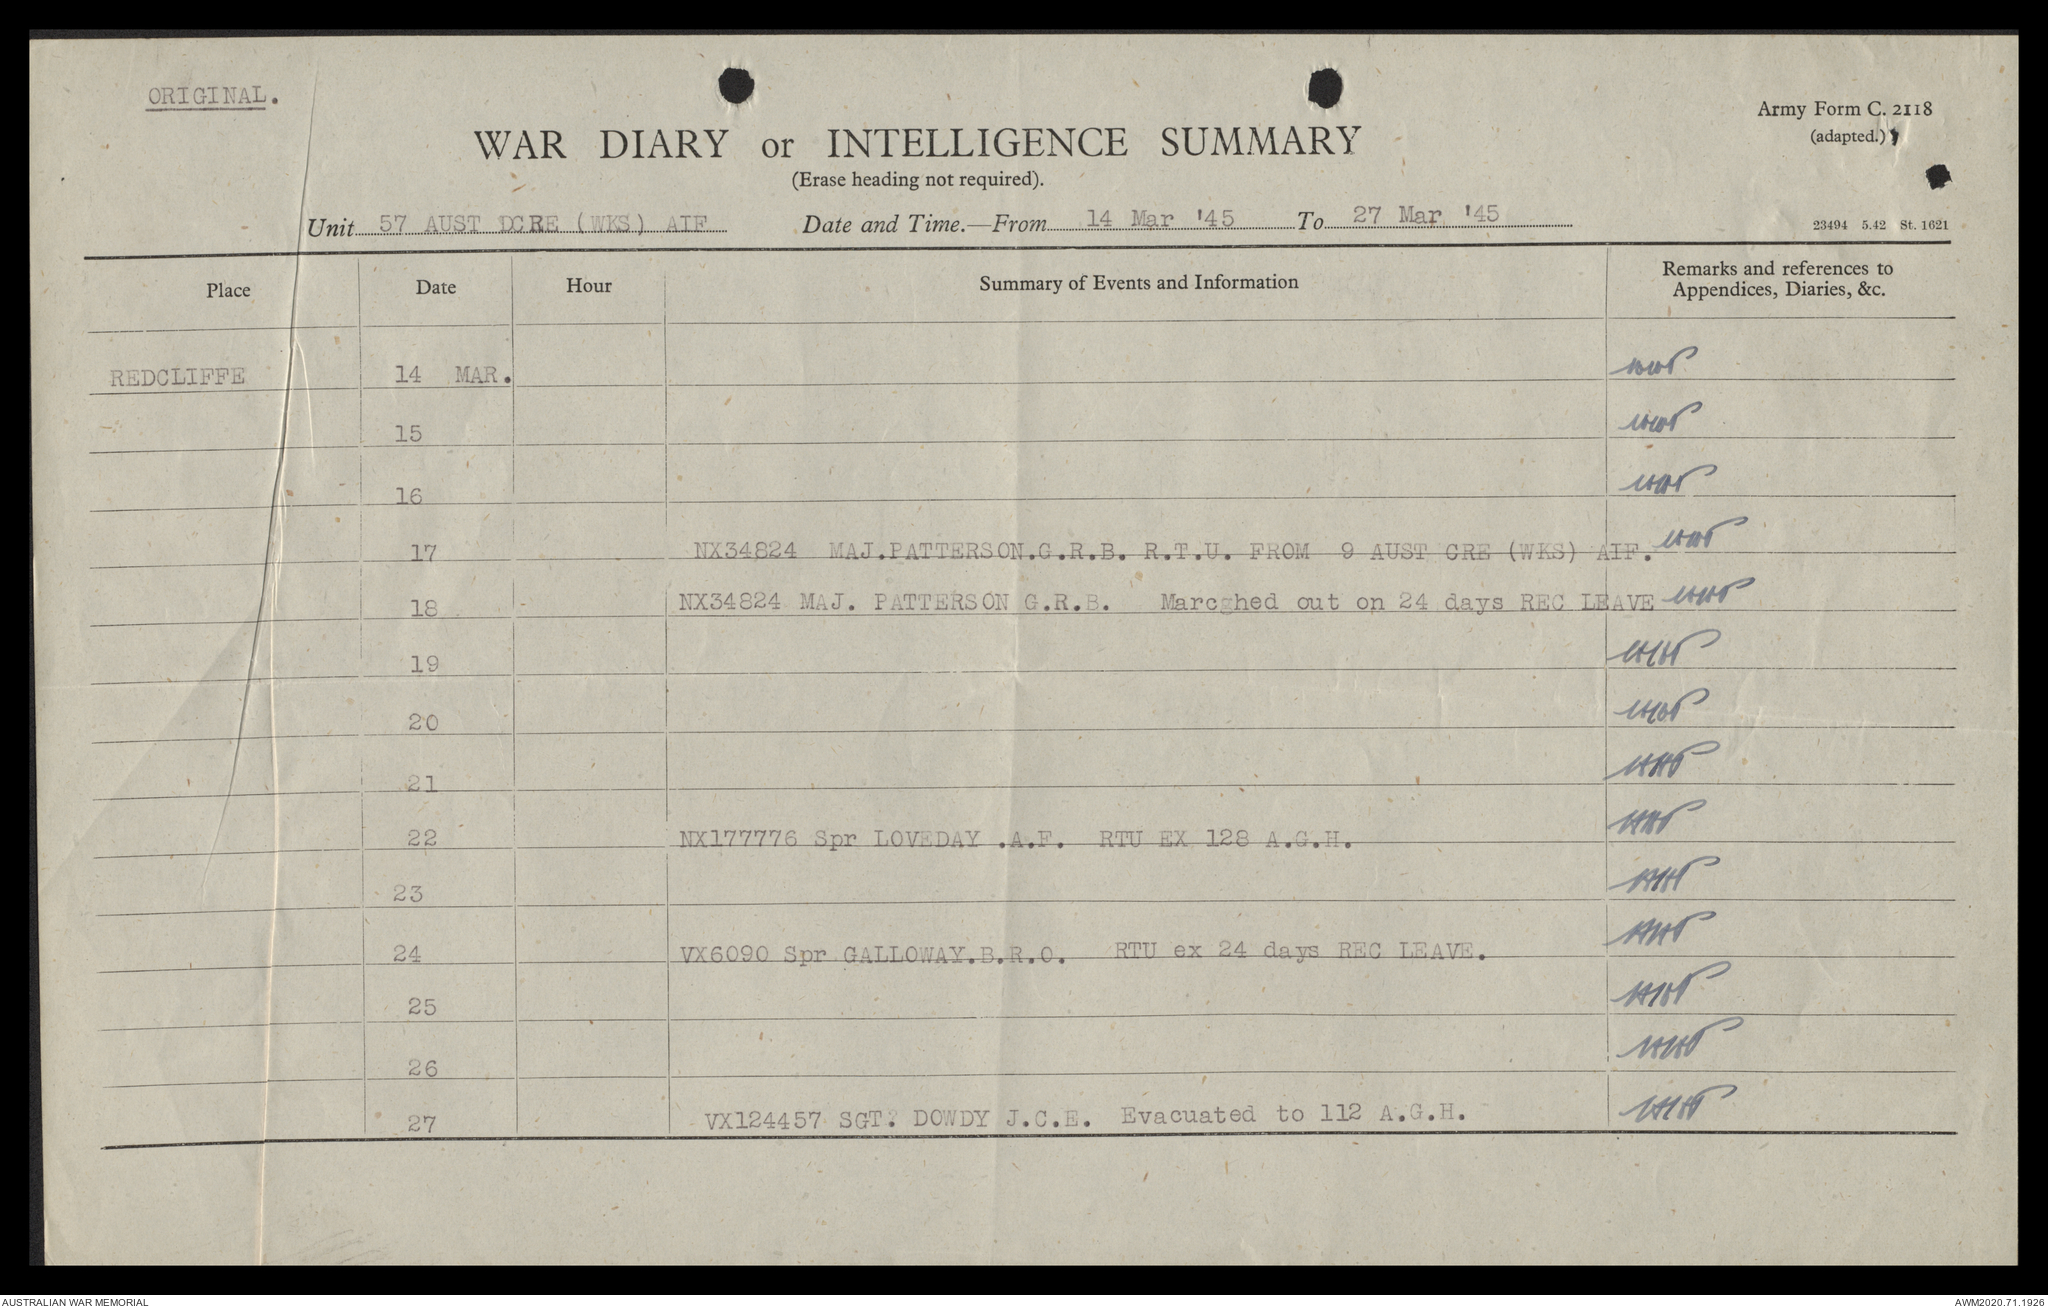 ORIGINAL.
Army Form C. 2118
(adapted.)
WAR DIARY or INTELLIGENCE SUMMARY
(Erase heading not required).
Unit 57 AUST DCRE (WKS) AIF Date and Time.—From 14 Mar '45 To 27 Mar '45
23494 5.42 St. 1621
Place Date Hour Summary of Events and Information Remarks and references to
Appendices, Diaries, &c.
REDCLIFFE 14 MAR.
15
16
17 NX34824 MAJ.PATTERSON.G.R.B. R.T.U. FROM 9 AUST CRE (WKS) AIF.
18 NX34824 MAJ. PATTERSON G.R.B. Marcghed out on 24 days REC LEAVE
19
20
21
22 NX177776 Spr LOVEDAY .A.F. RTU EX 128 A.G.H.
23
24 VX6090 Spr GALLOWAY.B.R.O. RTU ex 24 days REC LEAVE.
25
26
27 VX124457 SGT. DOWDY J.C.E. Evacuated to 112 A.G.H.
AUSTRALIAN WAR MEMORIAL
AWM2020.71.1926